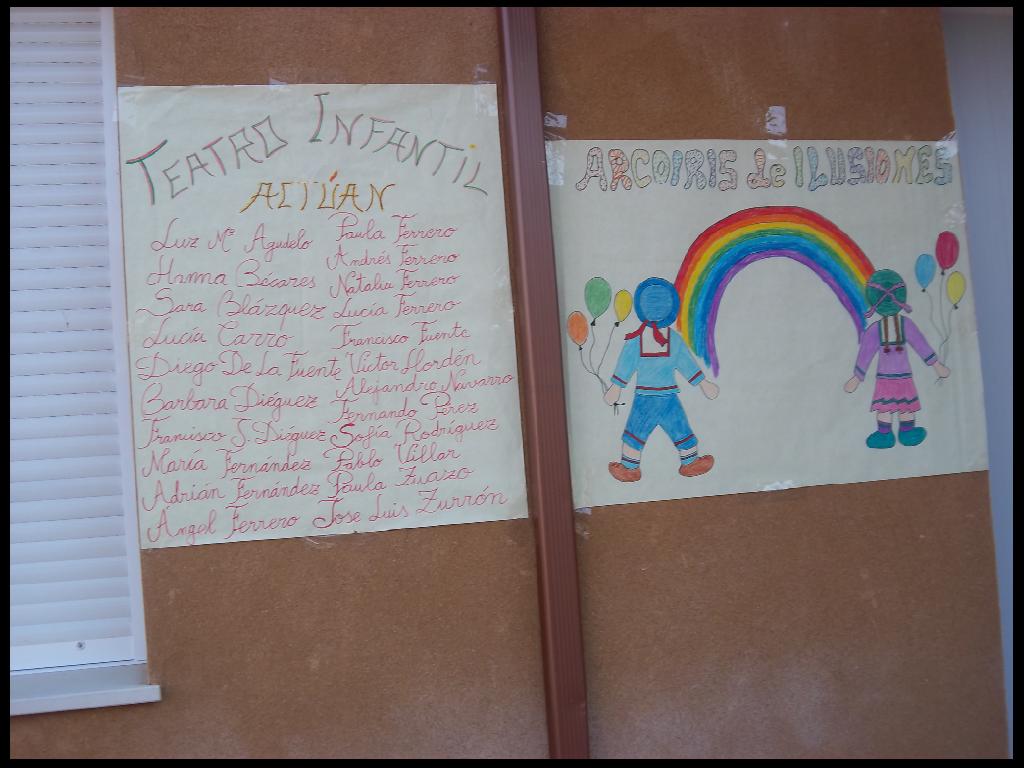 TEATRO INFANTIL
ACTÚAN
Luz Mª Agudelo
Hanna Bécares
Sara Blázquez
Lucía Carro
Diego De La Fuente
Barbara Diéguez
Francisco J. Diéguez
María Fernández
Adrián Fernández
Ángel Ferrero
Paula Ferrero
Andrés Ferrero
Natalia Ferrero
Lucía Ferrero
Francisco Fuente
Victor Llordén
Alejandro Navarro
Fernando Pérez
Sofía Rodríguez
Pablo Villar
Paula Zuazo
Jose Luis Zurrón
ARCOIRIS de ILUSIONES